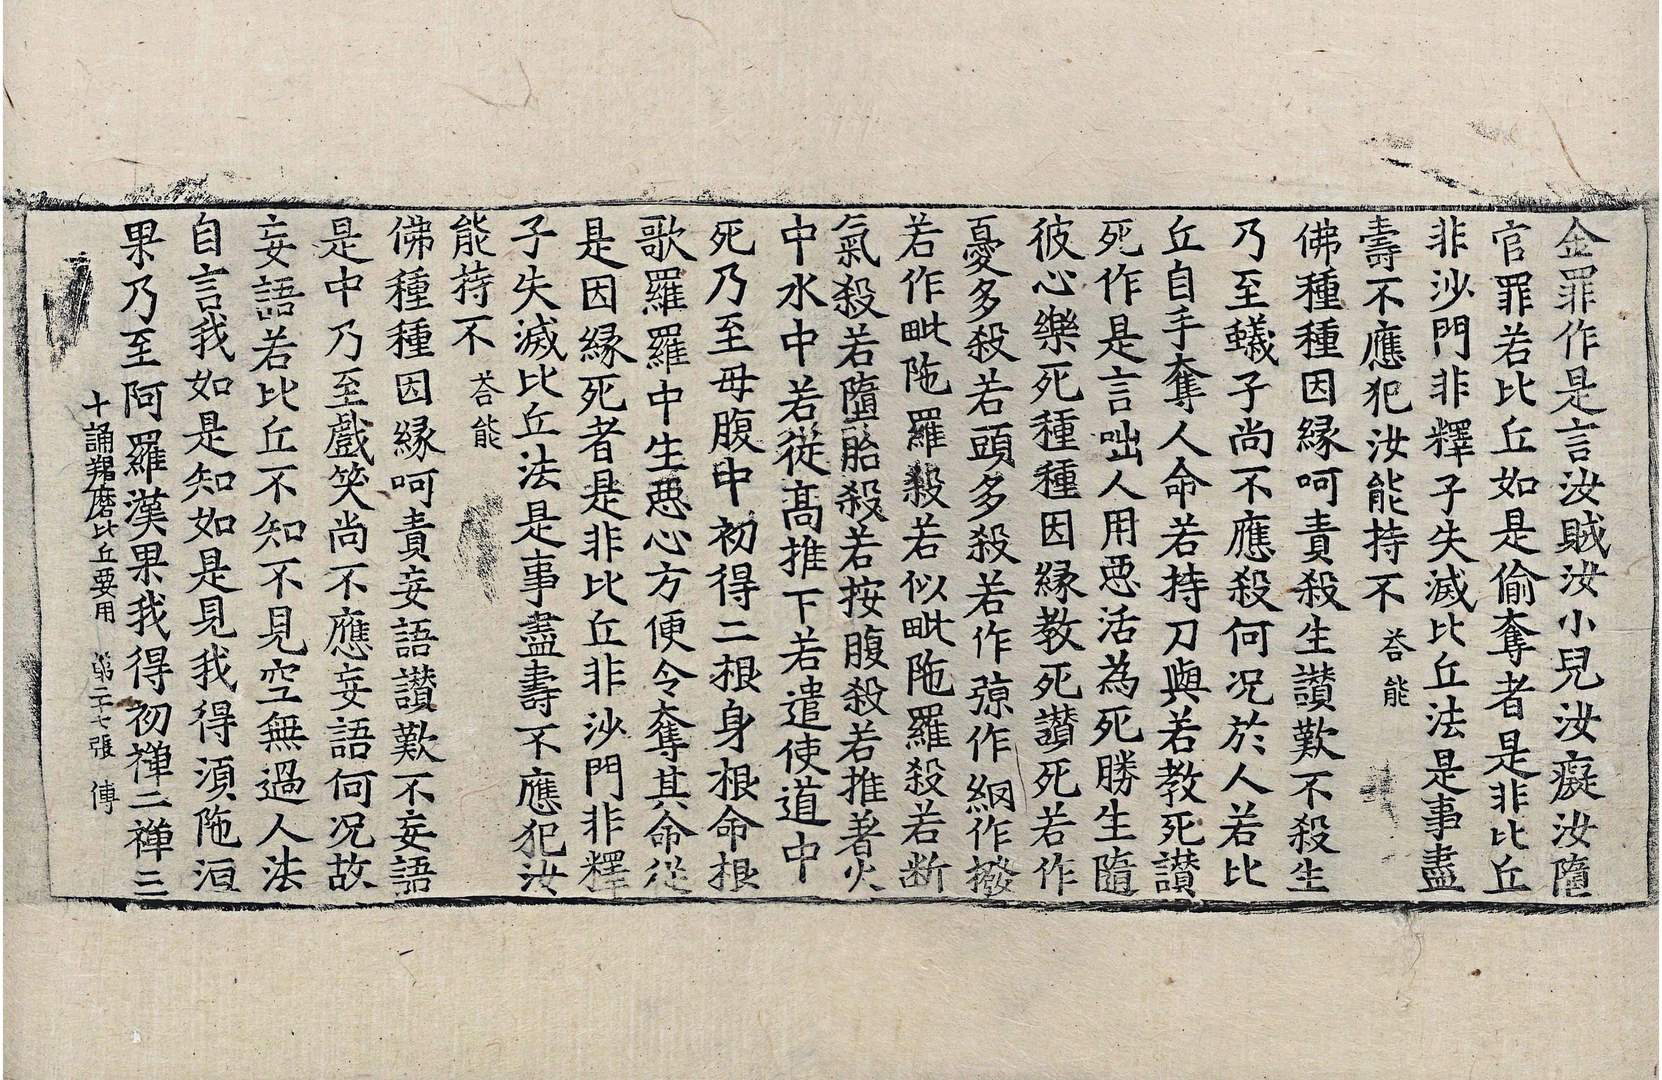 金罪作是言汝賊汝小兒汝癡汝墮
官罪若比丘如是偷奪者是非比丘
非沙門非釋子失滅比丘法是事盡
壽不應犯汝能持不 荅能
佛種種因緣呵責殺生讃歎不殺生
乃至蟻子尚不應殺何况於人若比
丘自手奪人命若持刀與若教死讃
死作是言咄人用惡活為死勝生隨
彼心樂死種種因緣教死讃死若作
憂多殺若頭多殺若作弶作網作撥
若作毗陁羅殺若似毗陁羅殺若断
氣殺若墮胎殺若按腹殺若推著火
中水中若從髙推下若遣使道中
死乃至母腹中初得二根身根命根
歌羅羅中生惡心方便令奪其命從
是因緣死者是非比丘非沙門非釋
子失滅比丘法是事盡壽不應犯汝
能持不 荅能
佛種種因緣呵責妄語讃歎不妄語
是中乃至戲笑尚不應妄語何况故
妄語若比丘不知不見空無過人法
自言我如是知如是見我得湏陁洹
果乃至阿羅漢果我得初禪二禪三
十誦羯磨比丘要用 第二十七張 傅